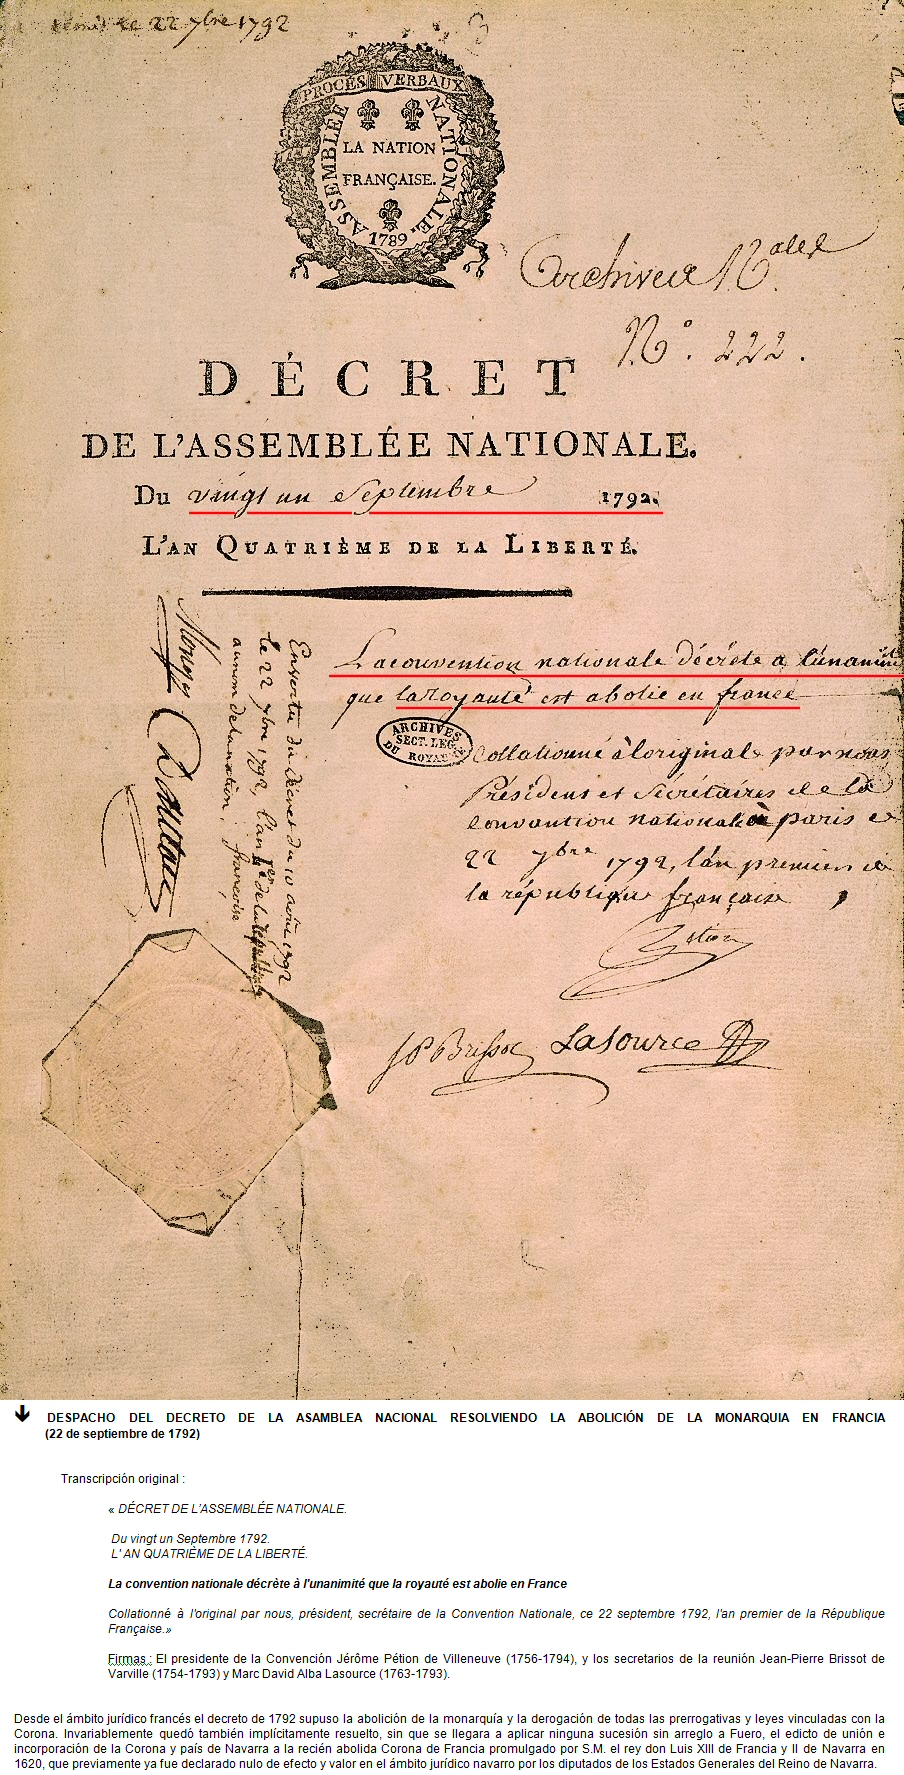 22 7bre 1792
PROCÈS VERBAUX
ASSEMBLÉE NATIONALE.
LA NATION
FRANÇAISE.
1789
Archives Nales
N° 222.
DÉCRET
DE L'ASSEMBLÉE NATIONALE.
Du vingt un Septembre 1792.
L'AN QUATRIÈME DE LA LIBERTÉ.
La convention nationale décrète a l'unanimité
que la royauté est abolie en france
ARCHIVES
SECT. LEG.
DU ROYAUME
Collationné à l'original par nous
Président et Sécrétaires de la
Convention nationale à paris ce
22 7bre 1792, l'an premier de
la république françoise
Petion
JP Brissot Lasource
En vertu du décret du 10 août 1792
le 22 7bre 1792 l'an 1er de la République
au nom de la nation françoise
Monge
Danton
DESPACHO DEL DECRETO DE LA ASAMBLEA NACIONAL RESOLVIENDO LA ABOLICIÓN DE LA MONARQUIA EN FRANCIA
(22 de septiembre de 1792)
Transcripción original :
« DÉCRET DE L'ASSEMBLÉE NATIONALE.
Du vingt un Septembre 1792.
L' AN QUATRIÈME DE LA LIBERTÉ.
La convention nationale décrète à l'unanimité que la royauté est abolie en France
Collationné à l'original par nous, président, secrétaire de la Convention Nationale, ce 22 septembre 1792, l'an premier de la République
Française.»
Firmas : El presidente de la Convención Jérôme Pétion de Villeneuve (1756-1794), y los secretarios de la reunión Jean-Pierre Brissot de
Varville (1754-1793) y Marc David Alba Lasource (1763-1793).
Desde el ámbito jurídico francés el decreto de 1792 supuso la abolición de la monarquía y la derogación de todas las prerrogativas y leyes vinculadas con la
Corona. Invariablemente quedó también implícitamente resuelto, sin que se llegara a aplicar ninguna sucesión sin arreglo a Fuero, el edicto de unión e
incorporación de la Corona y país de Navarra a la recién abolida Corona de Francia promulgado por S.M. el rey don Luis XIII de Francia y II de Navarra en
1620, que previamente ya fue declarado nulo de efecto y valor en el ámbito jurídico navarro por los diputados de los Estados Generales del Reino de Navarra.